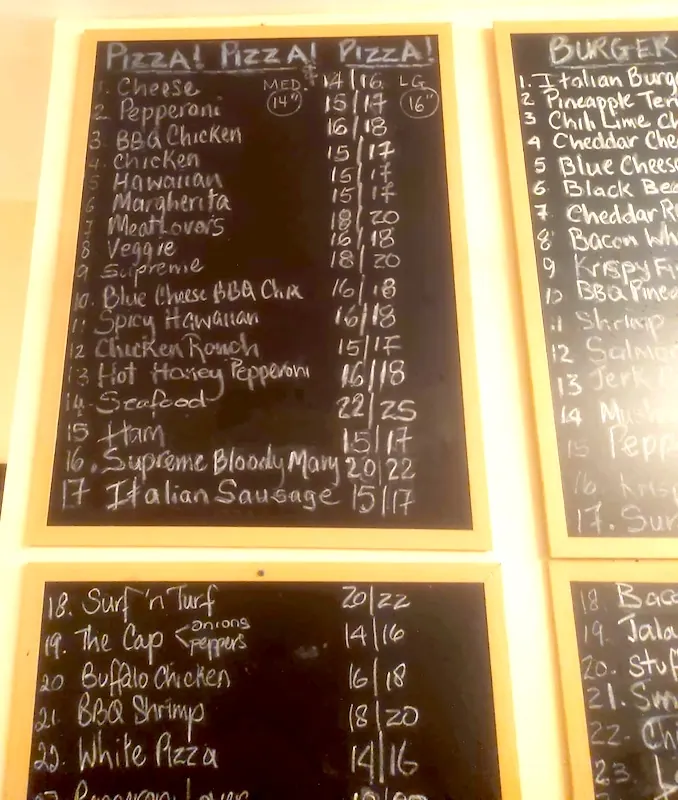 PIZZA! PIZZA! PIZZA!
MED. 14" $ LG 16"
1. Cheese 14/16
2 Pepperoni 15/17
3. BBQ Chicken 16/18
4. Chicken 15/17
5 Hawaiian 15/17
6 Margherita 15/17
7 MeatLovers 18/20
8 Veggie 16/18
9 Supreme 18/20
10. Blue Cheese BBQ Chix 16/18
11 Spicy Hawaiian 16/18
12 Chicken Ranch 15/17
13 Hot Honey Pepperoni 16/18
14. Seafood 22/25
15 Ham 15/17
16. Supreme Bloody Mary 20/22
17 Italian Sausage 15/17
18. Surf 'n Turf 20/22
19. The Cap < onions peppers 14/16
20 Buffalo Chicken 16/18
21. BBQ Shrimp 18/20
22. White Pizza 14/16
BURGER
1. Italian Burg
2 Pineapple Teri
3 Chili Lime Ch
4 Cheddar Che
5 Blue Cheese
6. Black Bea
7. Cheddar R
8 Bacon Wh
9 Krispy Fi
10 BBQ Pinea
11 Shrimp
12 Salmo
13 Jerk
14 Mush
15 Pepp
16. Krisp
17. Sur
18. Baco
19. Jala
20. Stuf
21. Sm
22. Chi
23. L